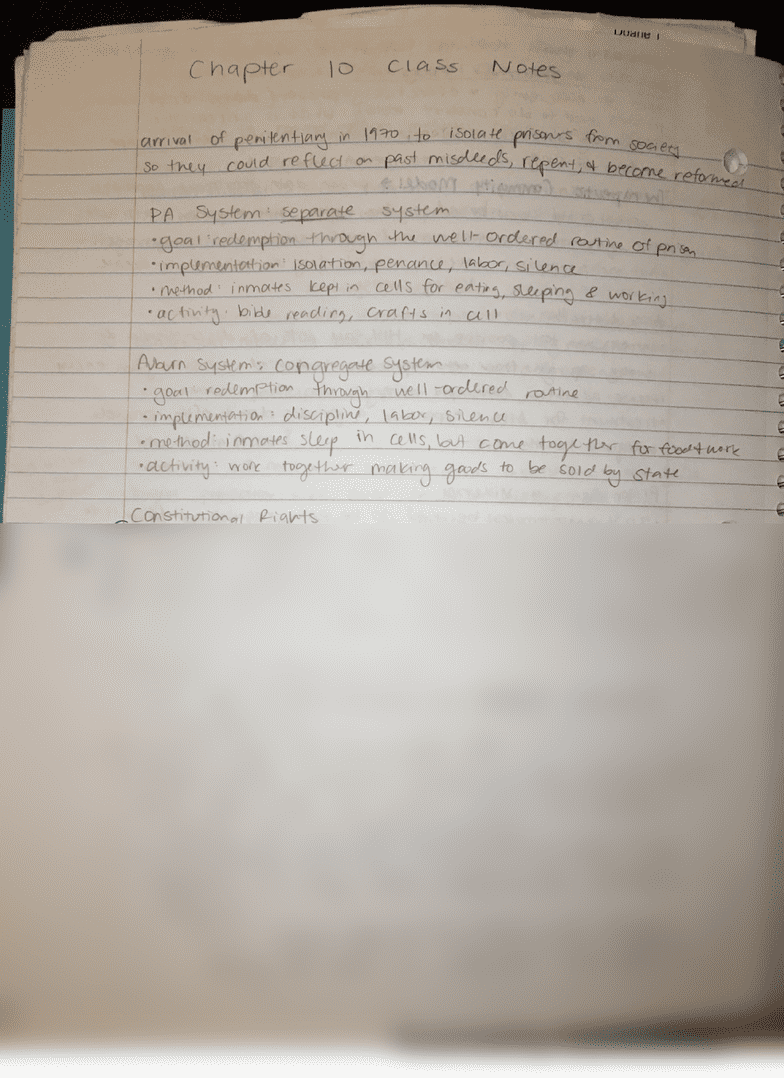 Chapter 10 Class Notes
arrival of penitentiary in 1970 to isolate prisoners from society
so they could reflect on past misdeeds, repent, & become reformed
PA System: separate system
• goal: redemption through the well-ordered routine of prison
• implementation: isolation, penance, labor, silence
• method: inmates kept in cells for eating, sleeping & working
• activity: bible reading, crafts in cell
Auburn System: congregate system
• goal: redemption through well-ordered routine
• implementation: discipline, labor, silence
• method: inmates sleep in cells, but come together for food & work
• activity: work together making goods to be sold by state
Constitutional Rights